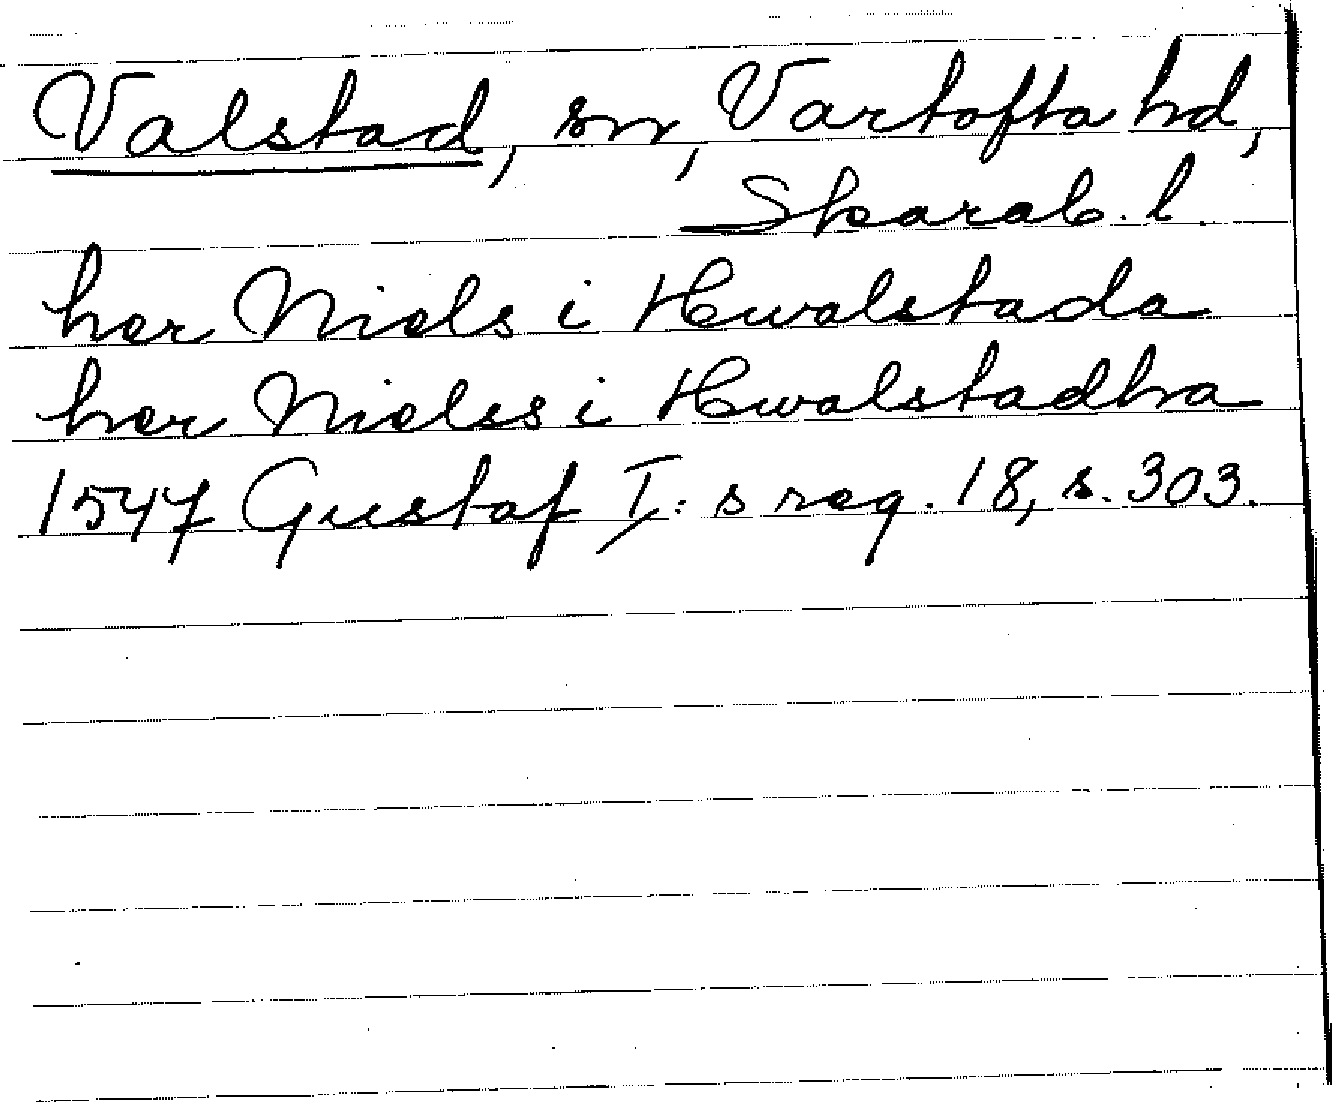 Valstad, sn, Vartofta hd,
Skarab. l.
her Niels i Hwalstada
her Nielss i Hwalstadha
1547 Gustaf I:s reg. 18, s. 303.